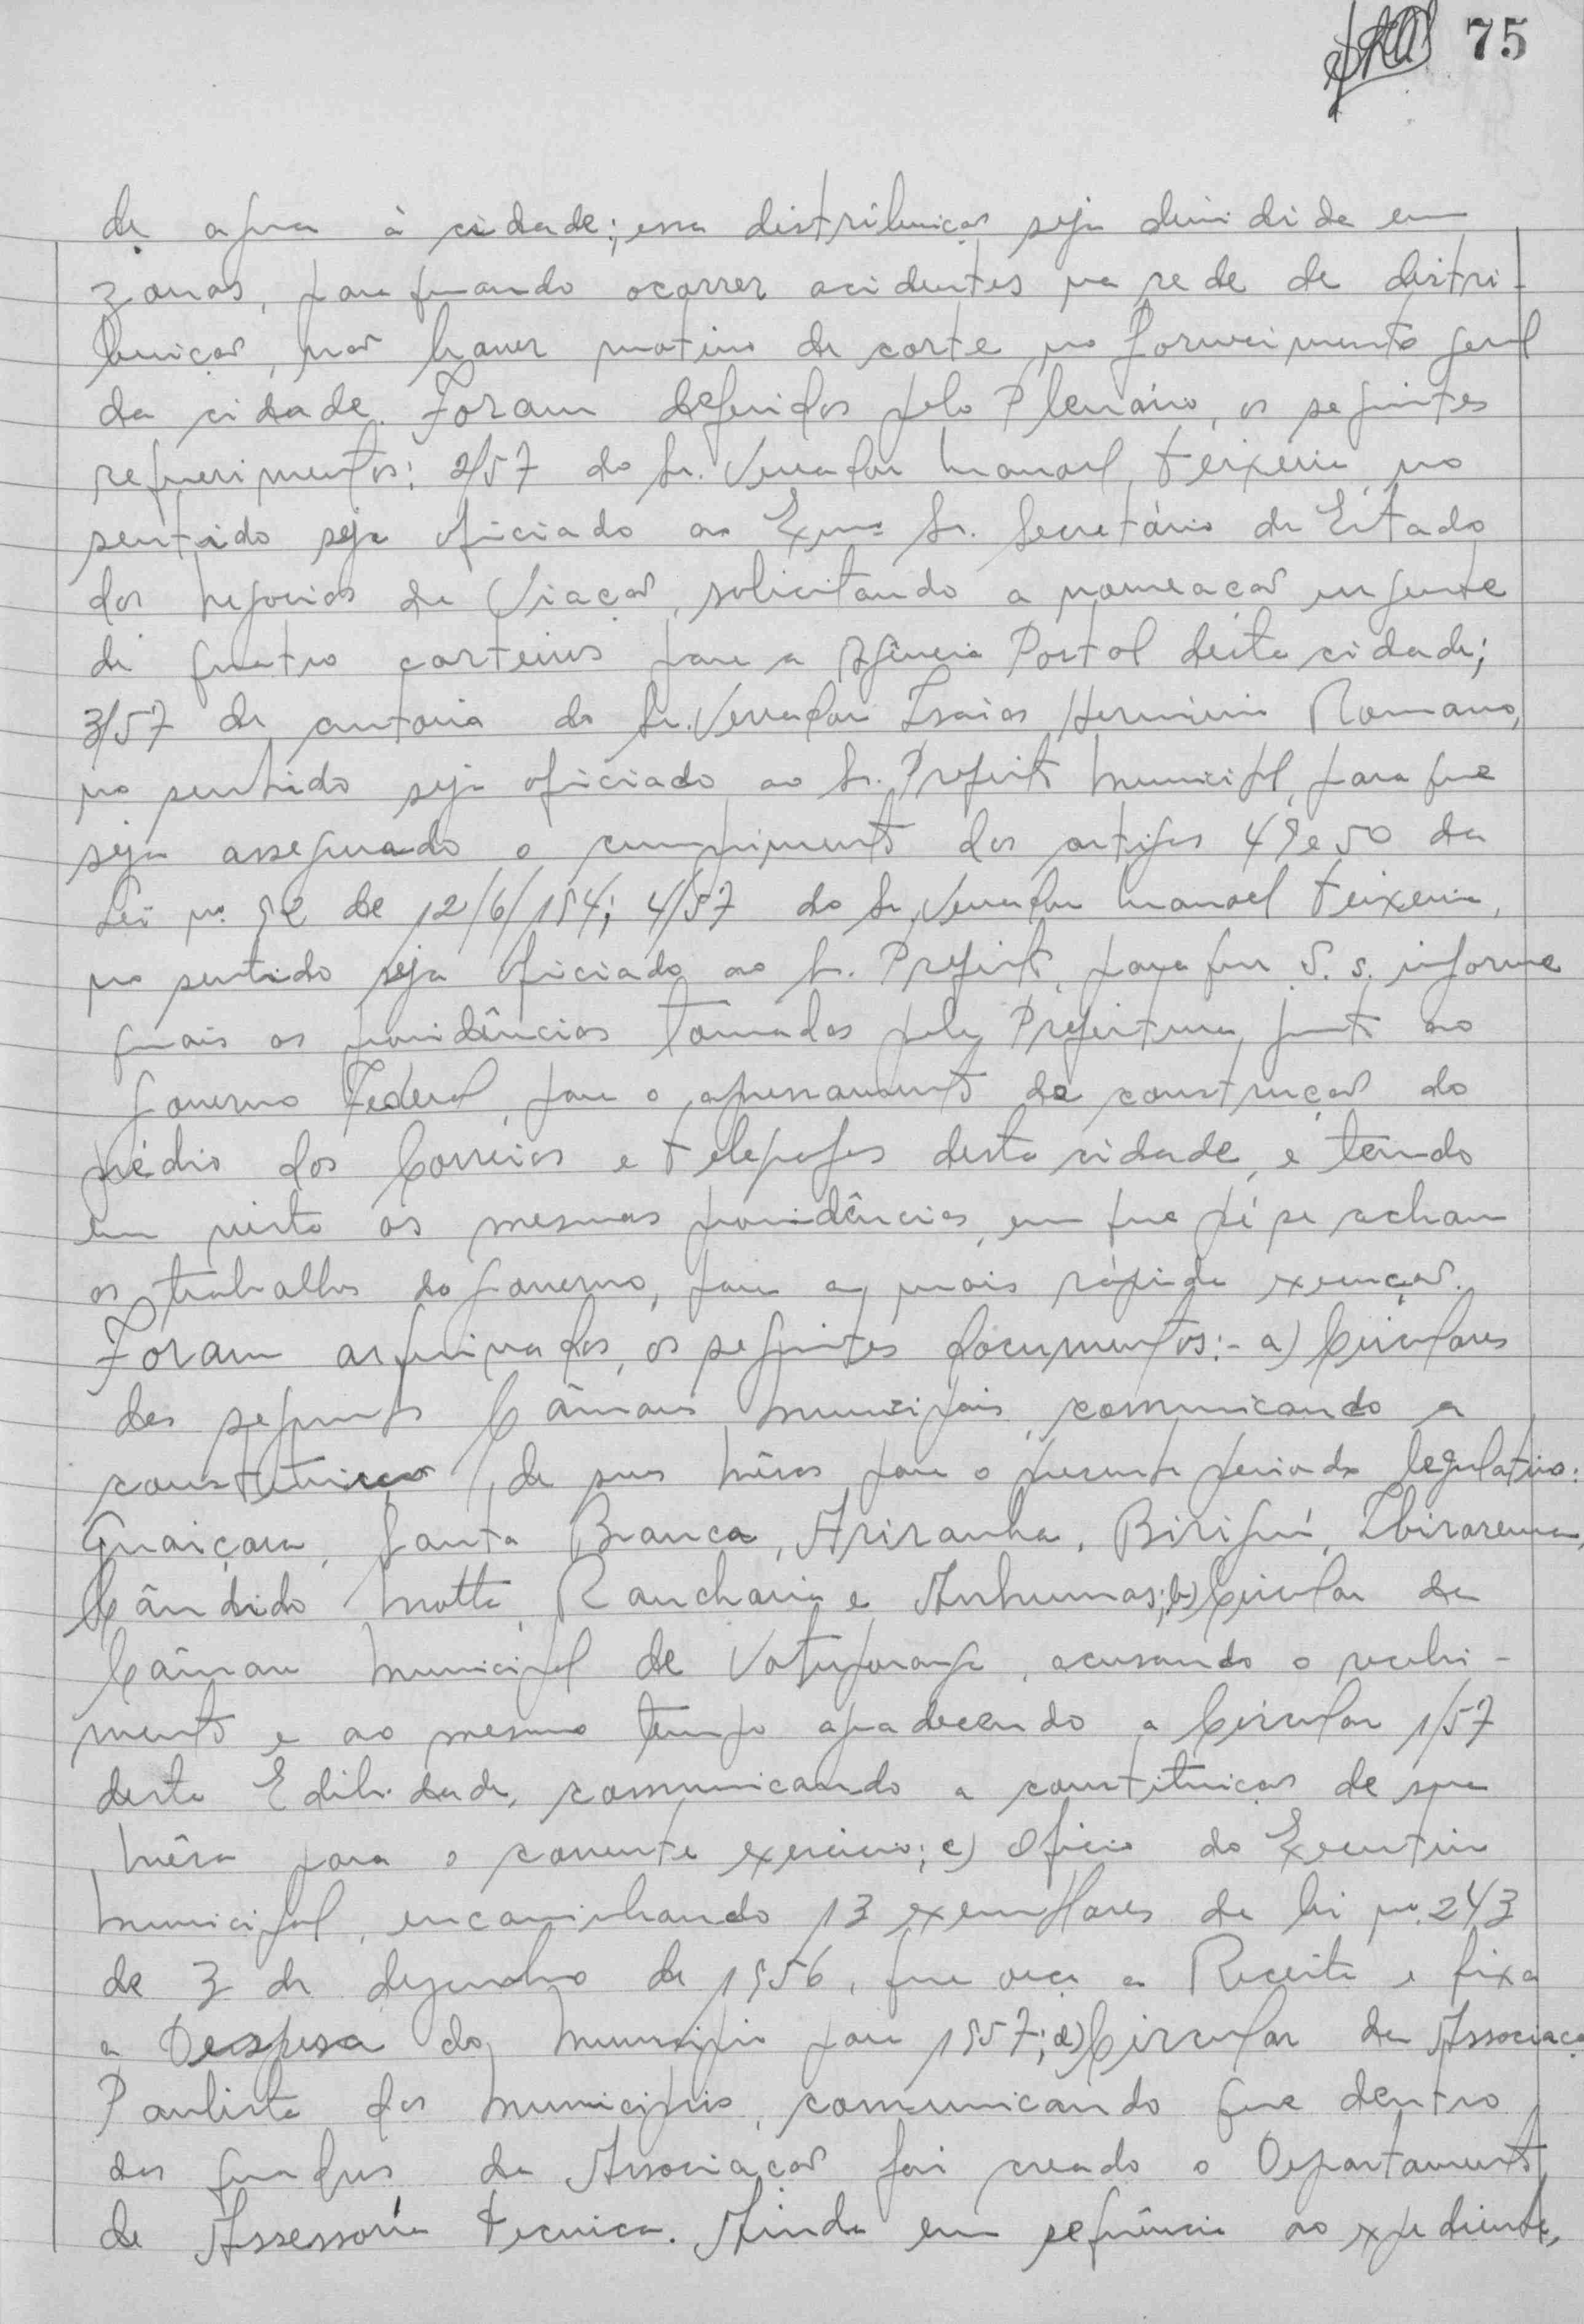 75
de agua à cidade; essa distribuição seja dividida em
zonas, para quando ocorrer acidentes na rede de distri-
buição, não haver motivo de corte no fornecimento geral
da cidade. Foram deferidos pelo Plenário, os seguintes
requerimentos: 2/57 do Sr. Vereador Manoel Teixeira no
sentido seja oficiado ao Exmo Sr. Secretário de Estado
dos Negocios da Viação, solicitando a nomeação urgente
de quatro carteiros para a Agência Postal desta cidade;
3/57 de autoria do Sr. Vereador Isaias Herminio Romano,
no sentido seja oficiado ao Sr. Prefeito Municipal, para que
seja assegurado o cumprimento dos artigos 49 e 50 da
Lei nº 92 de 12/6/954; 4/57 do Sr. Vereador Manoel Teixeira,
no sentido seja oficiado ao Sr. Prefeito, para que S. s. informe
quais as providências tomadas pela Prefeitura junto ao
Governo Federal, para o apressamento da construção do
prédio dos Correios e Telegrafos desta cidade, e tendo
em vista as mesmas providências, em que pé se acham
os trabalhos do governo, para a mais rápida execução.
Foram arquivados, os seguintes documentos:- a) Circulares
das seguintes Câmaras Municipais, comunicando a
constituição de suas Mêsas para o presente periodo legislativo:
Guaiçara, Santa Branca, Ariranha, Biriguí, Ibirarema,
Cândido Motta, Rancharia e Anhumas; b) Circular da
Câmara Municipal de Votuporanga, acusando o recebi-
mento e ao mesmo tempo agradecendo a Circular 1/57
desta Edilidade, comunicando a constituição de sua
Mêsa para o corrente exercicio; c) Oficio do Executivo
Municipal, encaminhando 13 exemplares da lei nº 243
de 3 de dezembro de 1956, que orça a Receita e fixa
a Despesa do Municipio para 1957; d) Circular da Associaçã
Paulista dos Municipios, comunicando que dentro
dos quadros da Associação foi creado o Departamento
de Assessoria Tecnica. Ainda em sequência ao expediente,